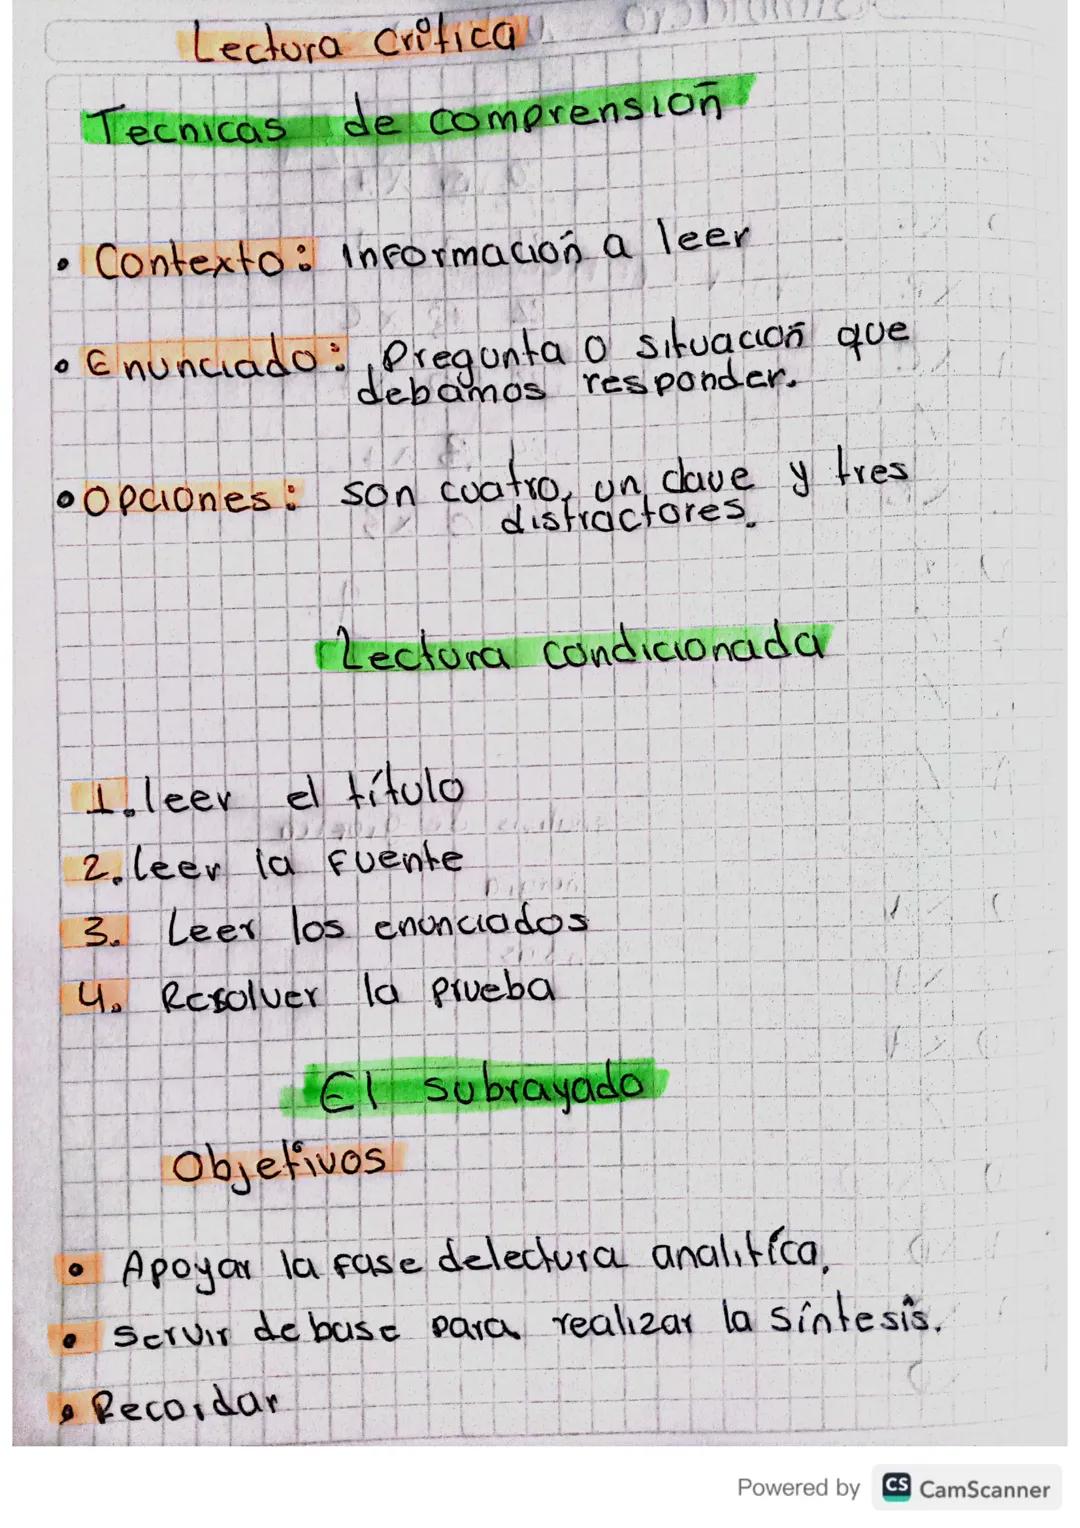 Lectura crítica
Tecnicas de comprensión
• Contexto: Información a leer
• Enunciado: Pregunta o situación que
debamos responder.
• Opciones: son cuatro, un clave y tres
distractores.
Lectura condicionada
1. leer el título
2. leer la fuente
3. Leer los enunciados
4. Resolver la prueba
El subrayado
Objetivos
• Apoyar la fase de lectura analitíca.
• Servir de base para realizar la síntesis.
• Recordar
Powered by CS CamScanner